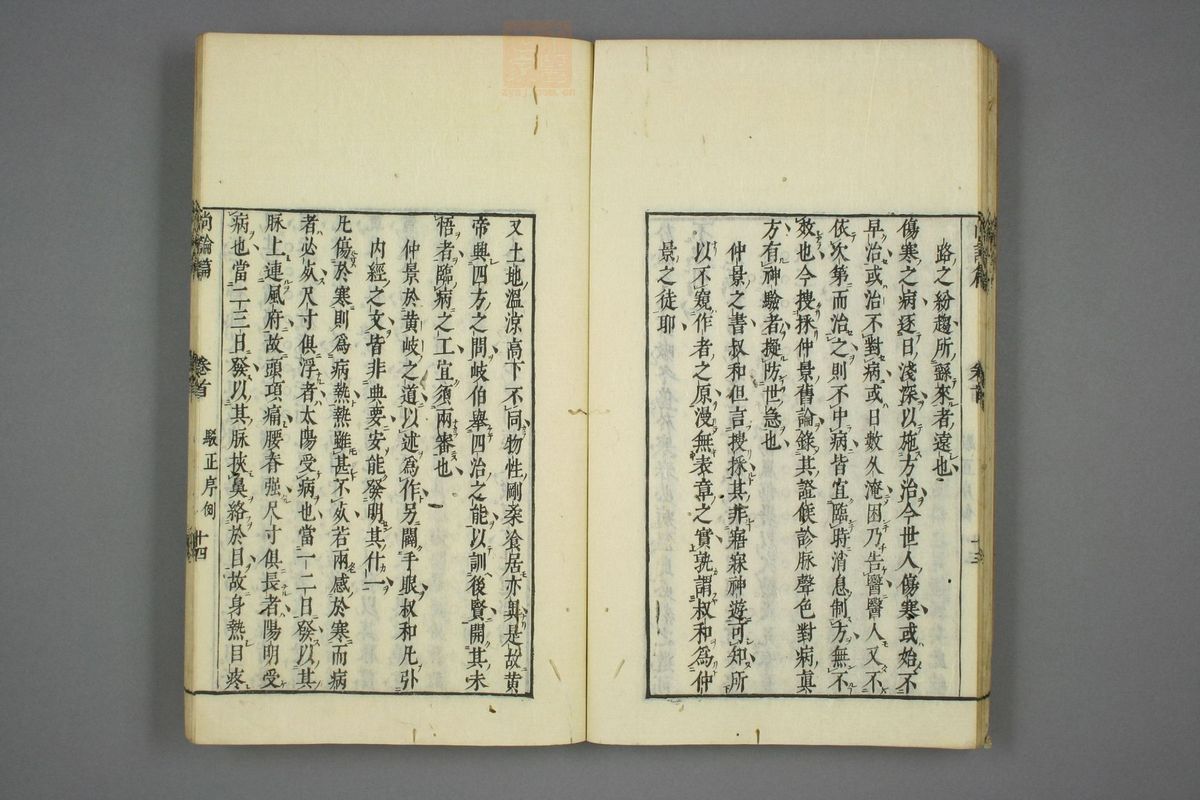 路之紛趨所繇來者遠也
傷寒之病逐日淺深以施方治今世人傷寒或始不
早治或治不對病或日數久淹困乃告醫醫人又不
依次第而治之則不中病皆宜臨時消息制方無不
效也今搜採仲景舊論錄其證候診脉聲色對病真
方有神驗者擬防世急也
仲景之書叔和但言搜採其非寤寐神遊可知所
以不窺作者之原漫無表章之實孰謂叔和為仲
景之徒耶
又土地溫涼高下不同物性剛柔飡居亦異是故黃
帝興四方之問岐伯舉四治之能以訓後賢開其未
悟者臨病之工宜須兩審也
仲景於黃岐之道以述為作另闢手眼叔和凡引
內經之文皆非典要安能發明其什一
凡傷於寒則為病熱熱雖甚不死若兩感於寒而病
者必死尺寸俱浮者太陽受病也當一二日發以其
脉上連風府故頭項痛腰脊強尺寸俱長者陽明受
病也當二三日發以其脉挾鼻絡於目故身熱目疼
尚論篇 卷首 駁正序例 十四